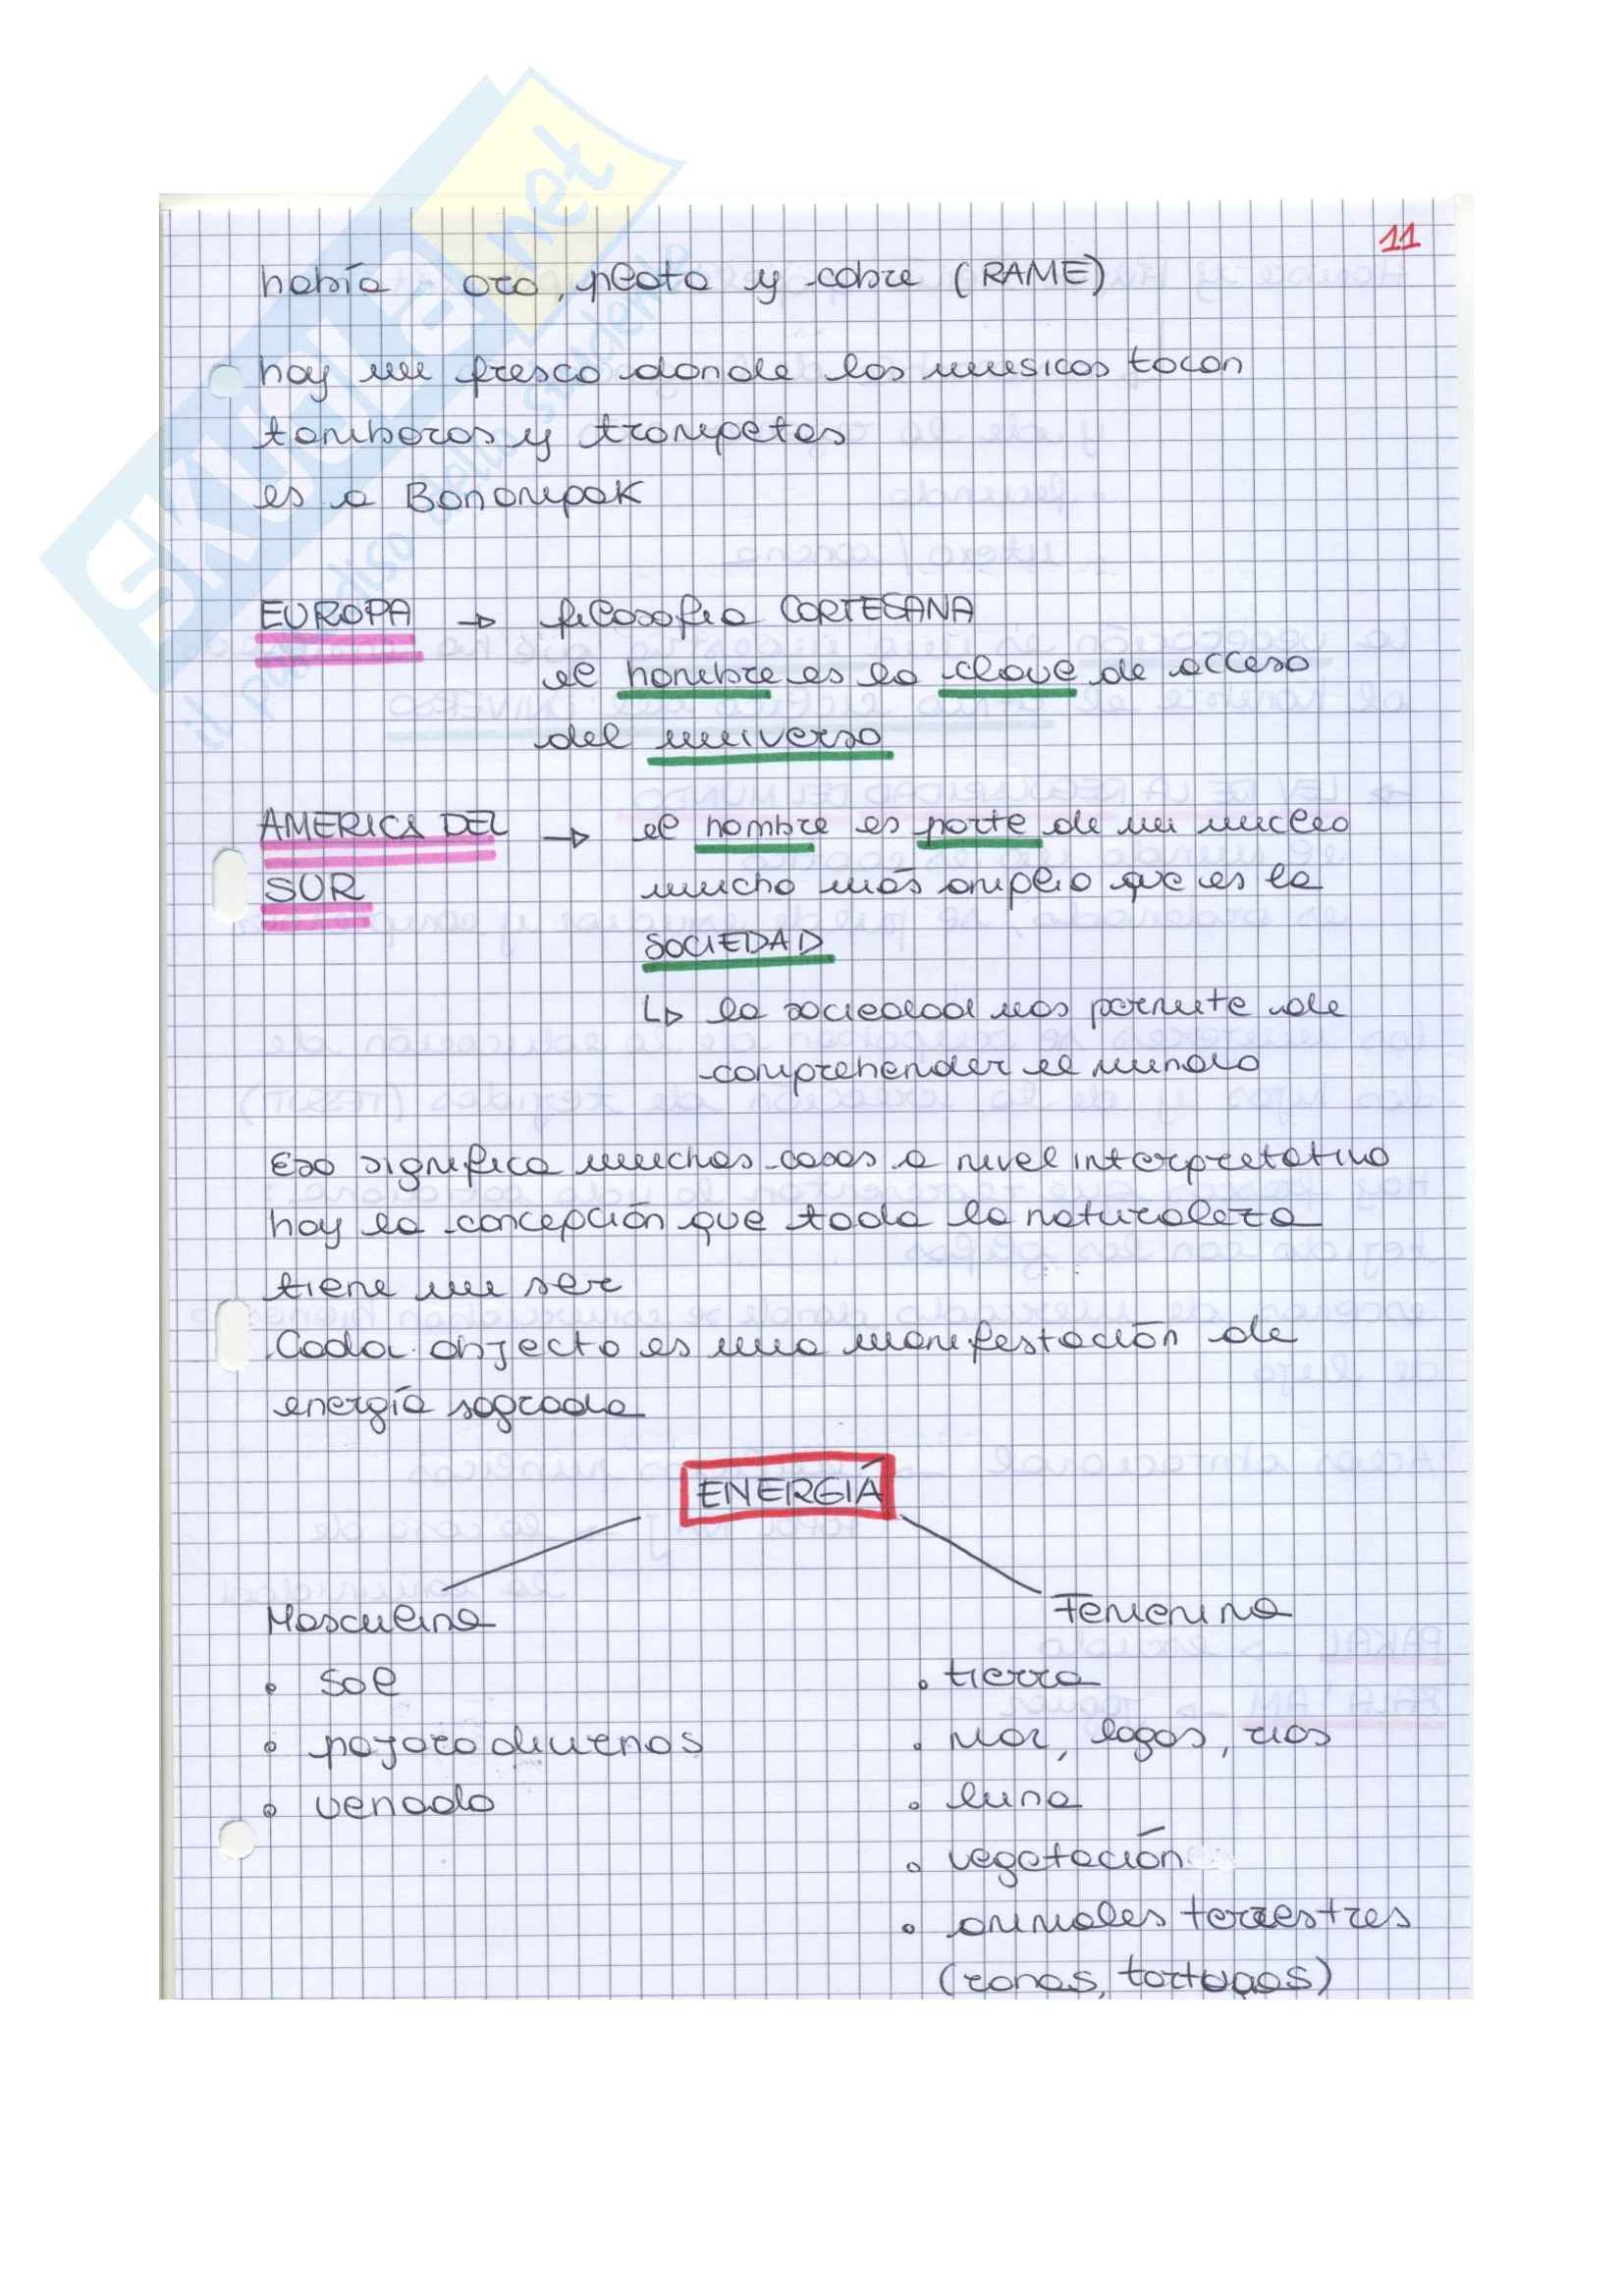 11
había oro, plata y cobre (RAME)
hay un fresco donde los musicos tocan
tamboros y trompetas
es a Bonampak
EUROPA → filosofia CORTESANA
el hombre es la clave de acceso
del universo
AMERICA DEL → el hombre es parte de un nucleo
SUR mucho más amplio que es la
SOCIEDAD
↳ la sociedad nos permite de
comprehender el mundo
Eso significa muchas cosas a nivel interpretativo
hay la concepción que toda la naturaleza
tiene un ser
Cada objecto es una manifestación de
energía sagrada
ENERGIÁ
Masculina Femenina
• sol • tierra
• pajaro diurnos • mar, lagos, rios
• venado • luna
• vegetación
• animales terrestres
(ranas, tortugas)
SKUOLA.net